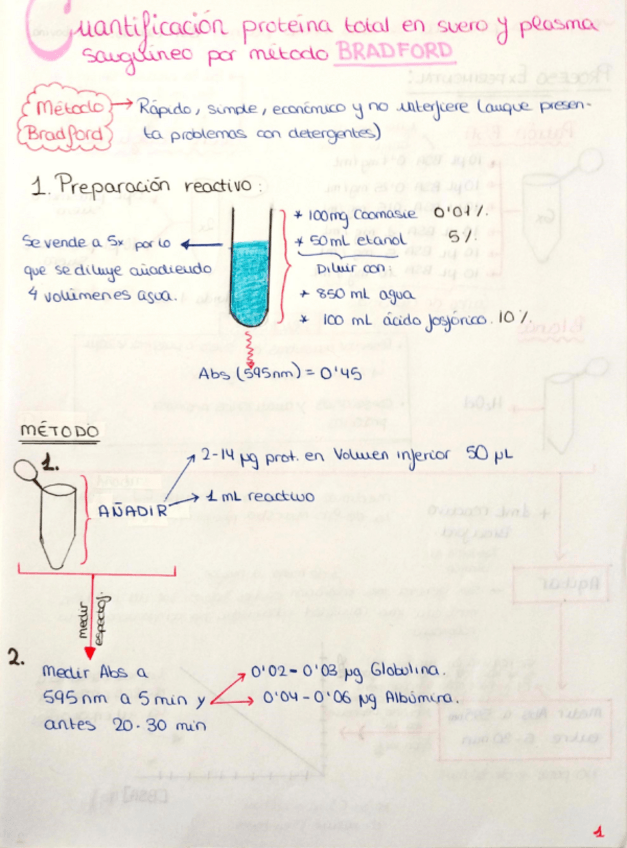 Cuantificación proteína total en suero y plasma
sanguíneo por método BRADFORD
Método Bradford → Rápido, simple, económico y no interfiere (aunque presen-
ta problemas con detergentes)
1. Preparación reactivo:
* 100mg Coomasie 0'01%.
* 50mL etanol 5%.
Diluir con:
* 850 mL agua
* 100 mL ácido fosfórico. 10%.
Se vende a 5x por lo
que se diluye añadiendo
4 volúmenes agua.
Abs (595nm) = 0'45
MÉTODO
1.
AÑADIR
→ 2-14 µg prot. en Volumen inferior 50 µL
→ 1 mL reactivo
medir
espectof.
2.
medir Abs a
595nm a 5min y
antes 20-30 min
→ 0'02-0'03 µg Globulina.
→ 0'04-0'06 µg Albúmina.
1